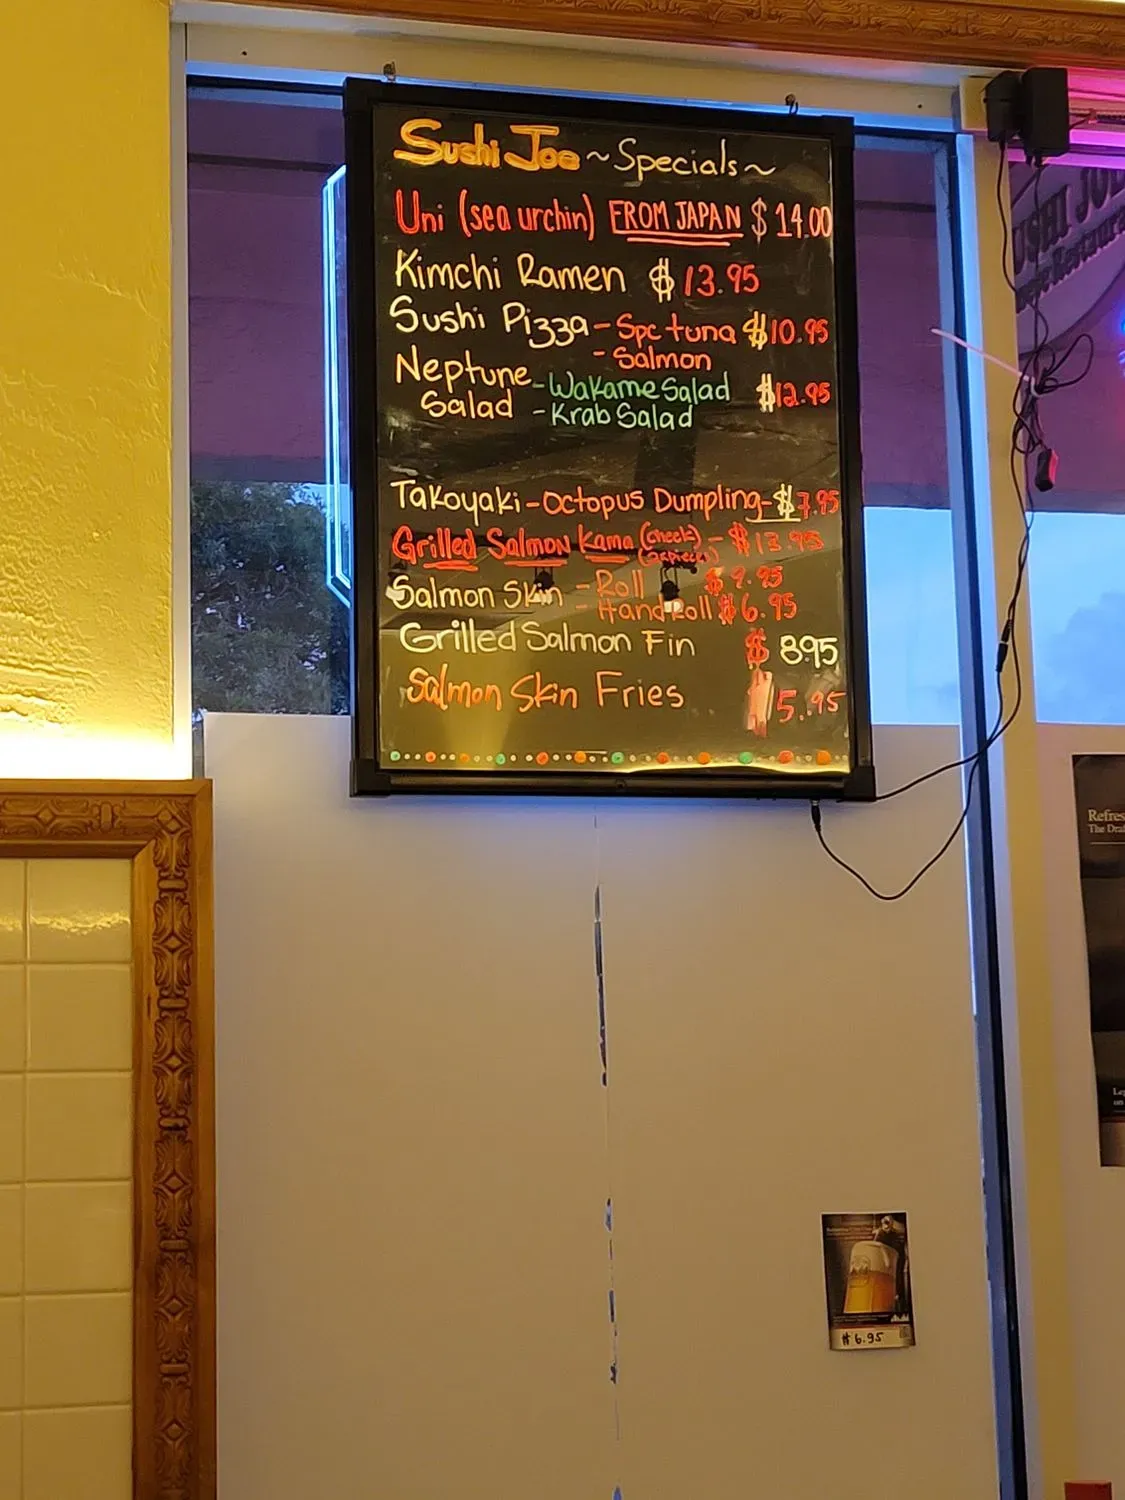 Sushi Joe ~ Specials ~
Uni (sea urchin) FROM JAPAN $ 14.00
Kimchi Ramen $ 13.95
Sushi Pizza - Spc tuna $10.95
- Salmon
Neptune - Wakame Salad $12.95
Salad - Krab Salad
Takoyaki - Octopus Dumpling - $7.95
Grilled Salmon Kama (cheek) - $13.95
Salmon Skin - Roll $9.95
- Hand Roll $6.95
Grilled Salmon Fin $ 8.95
Salmon Skin Fries 5.95
SUSHI JOE
Refres
The Dra
$ 6.95